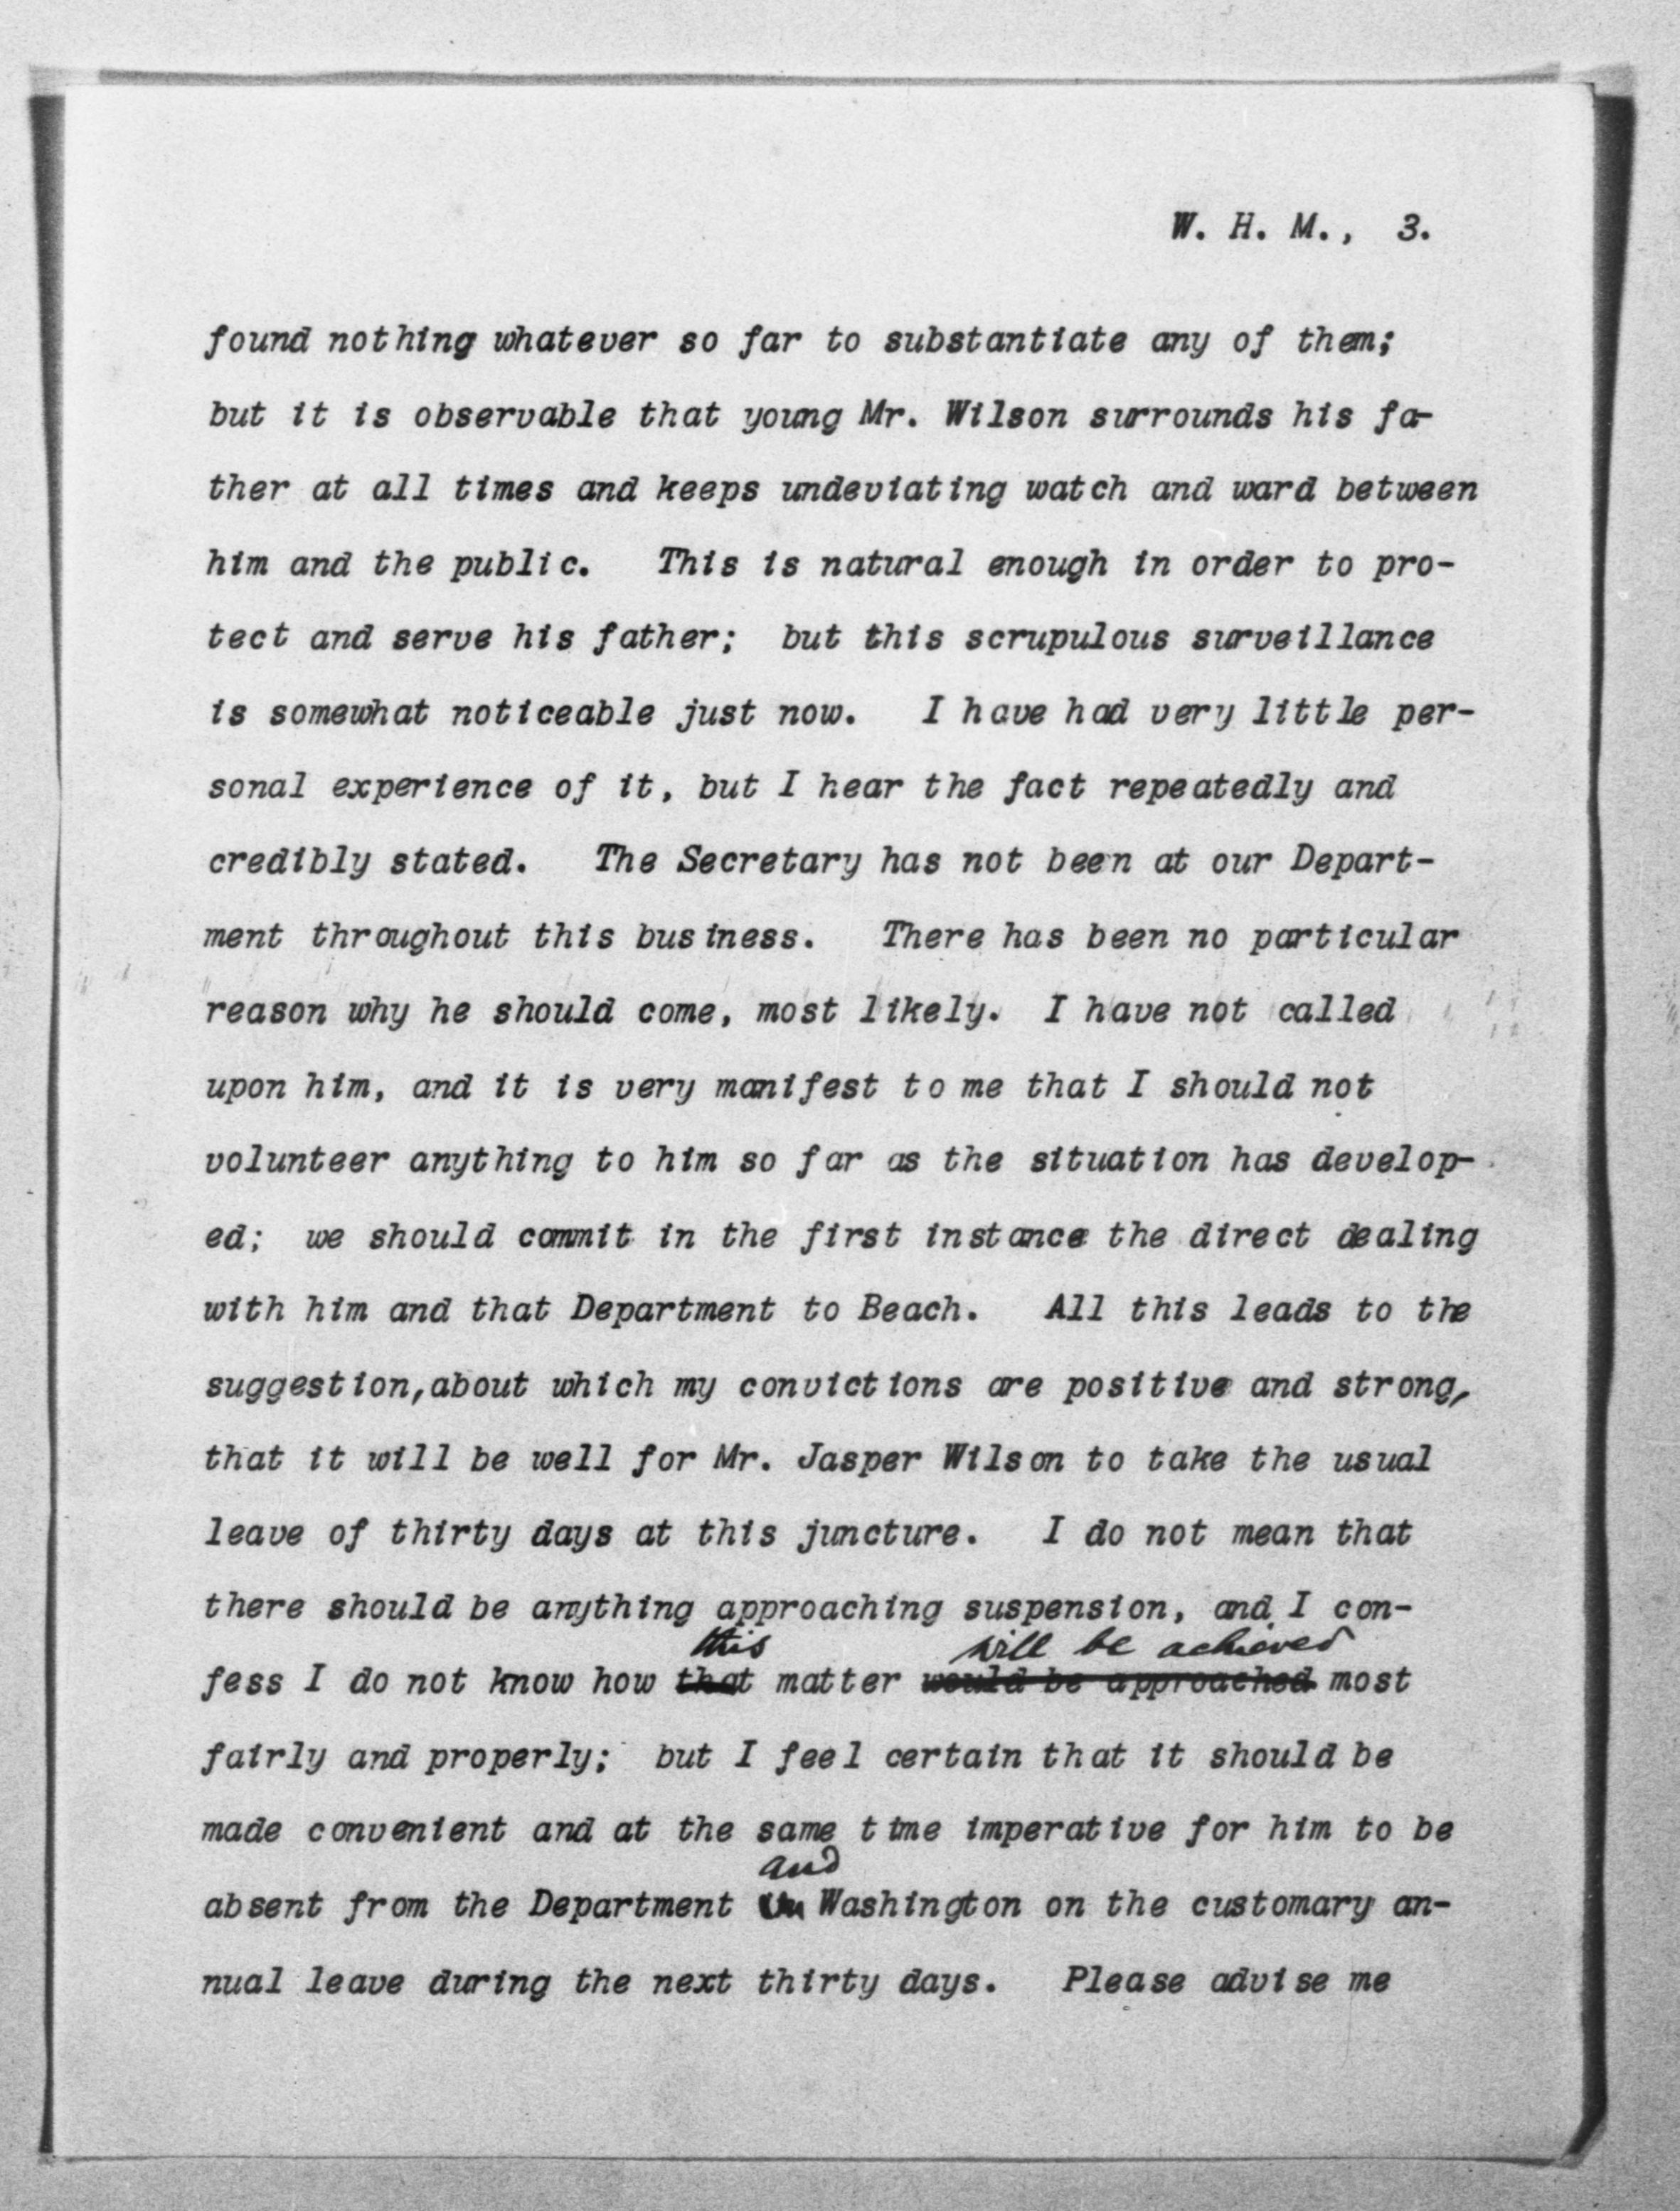 W. H. M., 3.
found nothing whatever so far to substantiate any of them;
but it is observable that young Mr. Wilson surrounds his fa-
ther at all times and keeps undeviating watch and ward between
him and the public. This is natural enough in order to pro-
tect and serve his father; but this scrupulous surveillance
is somewhat noticeable just now. I have had very little per-
sonal experience of it, but I hear the fact repeatedly and
credibly stated. The Secretary has not been at our Depart-
ment throughout this business. There has been no particular
reason why he should come, most likely. I have not called
upon him, and it is very manifest to me that I should not
volunteer anything to him so far as the situation has develop-
ed; we should commit in the first instance the direct dealing
with him and that Department to Beach. All this leads to the
suggestion, about which my convictions are positive and strong,
that it will be well for Mr. Jasper Wilson to take the usual
leave of thirty days at this juncture. I do not mean that
there should be anything approaching suspension, and I con-
this will be achieved
fess I do not know how that matter would be approached most
fairly and properly; but I feel certain that it should be
made convenient and at the same time imperative for him to be
and
absent from the Department in Washington on the customary an-
nual leave during the next thirty days. Please advise me